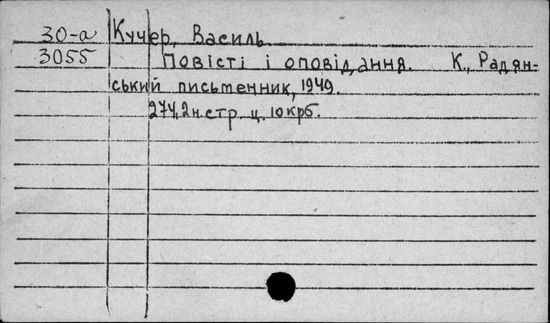 30-а Кучер, Василь
3055 Повісті і оповідання. К., Радян-
ський письменник, 1949.
274, 2 н. стр. ц. 10 крб.